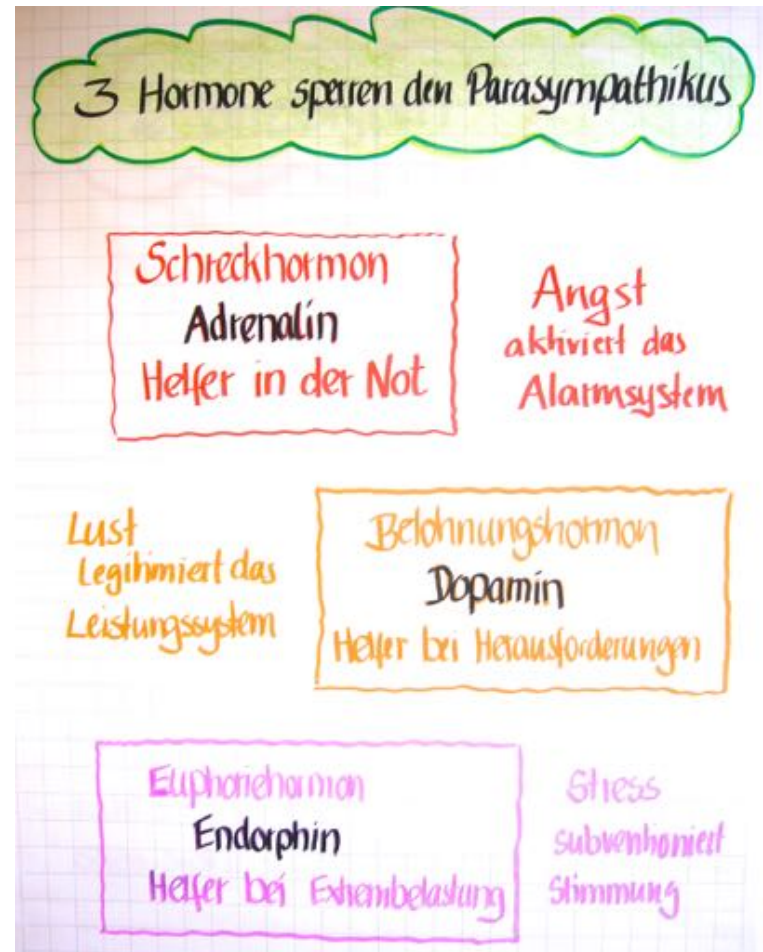 3 Hormone sperren den Parasympathikus
Schreckhormon
Adrenalin
Helfer in der Not
Angst
aktiviert das
Alarmsystem
Lust
Legitimiert das
Leistungssystem
Belohnungshormon
Dopamin
Helfer bei Herausforderungen
Euphoriehormon
Endorphin
Helfer bei Extrembelastung
Stress
subventioniert
Stimmung